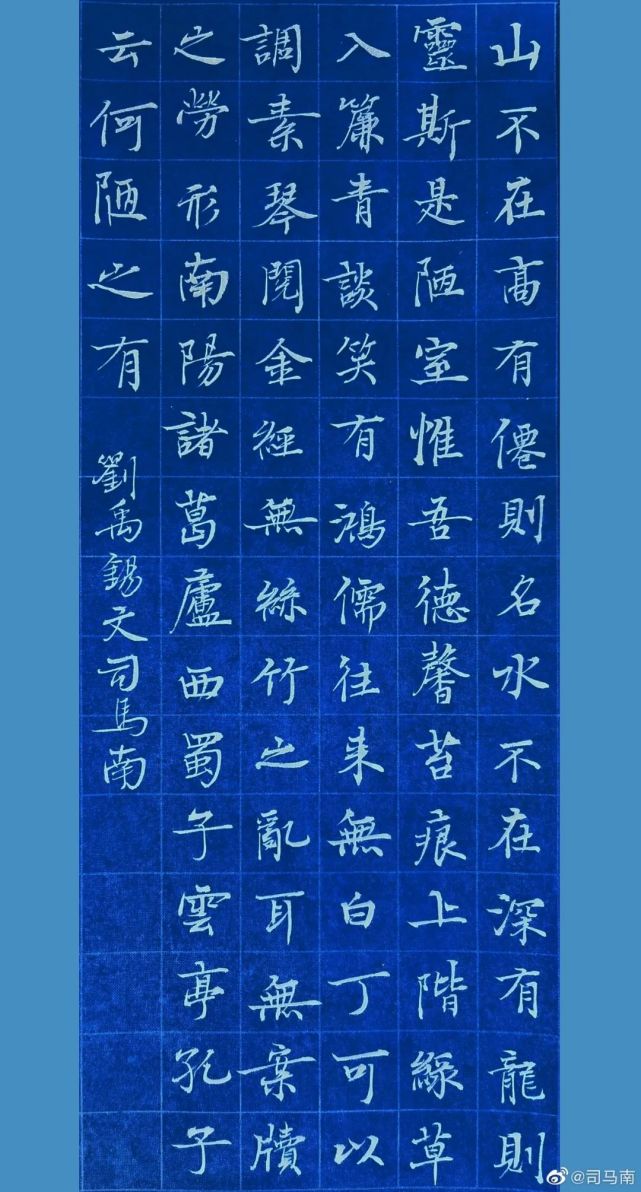 山不在高有僊則名水不在深有龍則
靈斯是陋室惟吾德馨苔痕上階綠草
入簾青談笑有鴻儒往来無白丁可以
調素琴閱金經無絲竹之亂耳無案牘
之勞形南陽諸葛廬西蜀子雲亭孔子
云何陋之有
劉禹錫文司馬南
@司马南